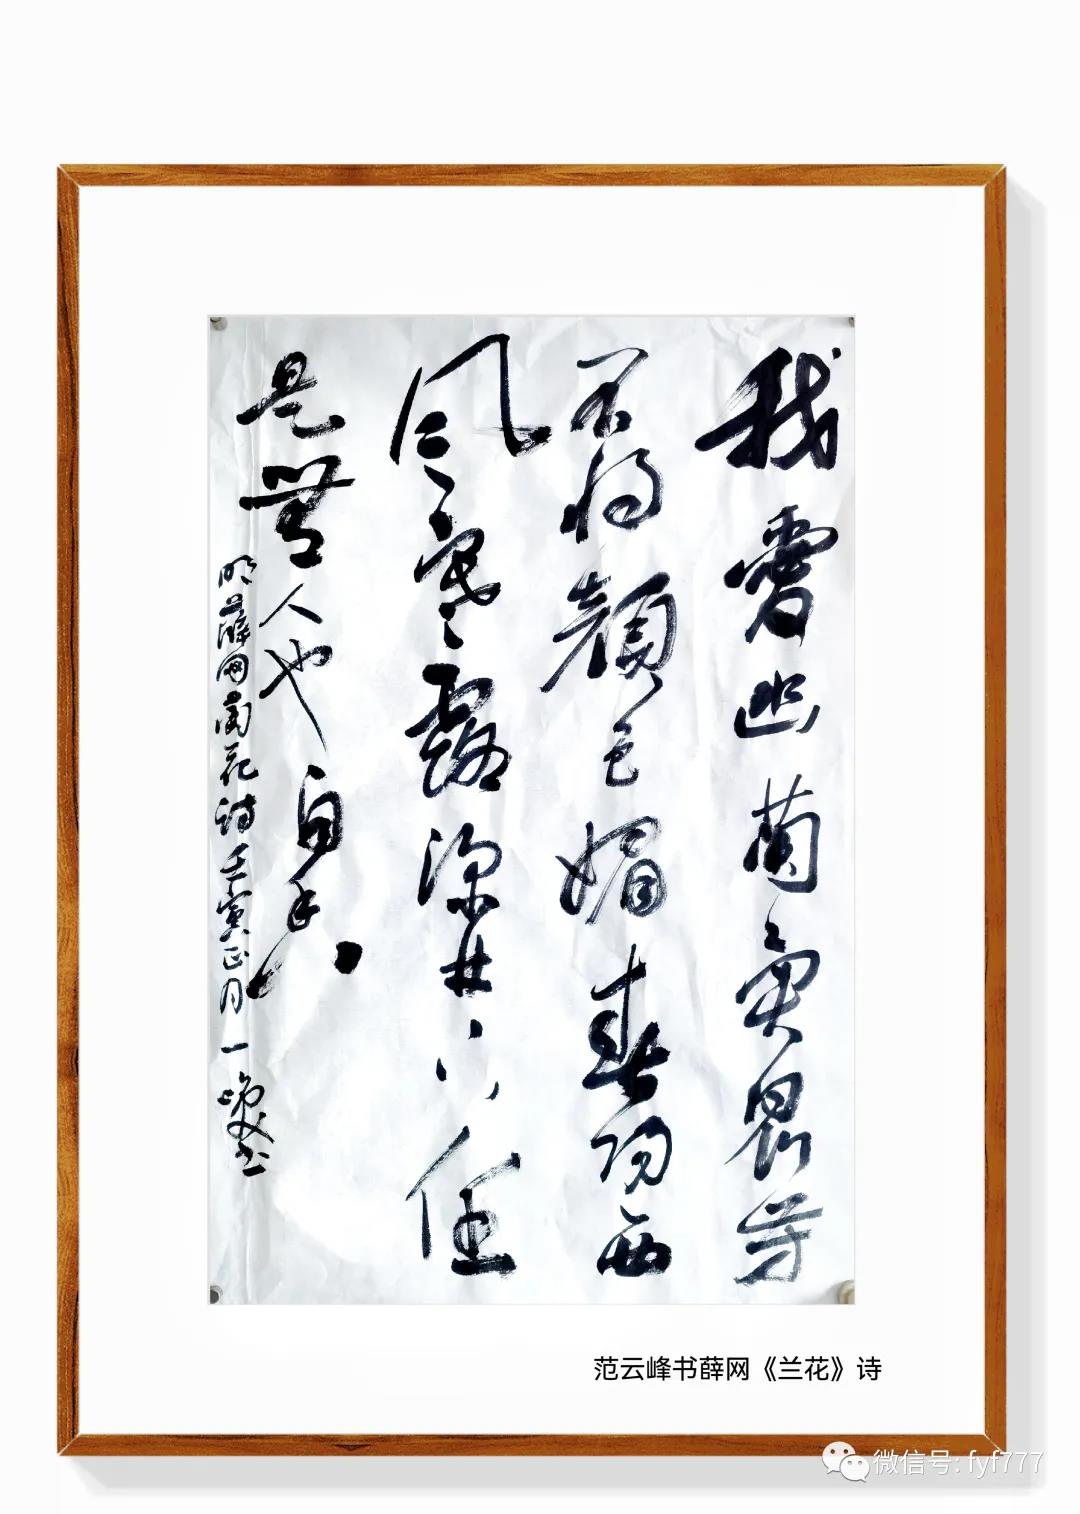 我愛幽蘭異眾芳
不将顏色媚春陽西
風寒露深林下任
是無人也自香
明薛网蘭花诗壬寅正月一
范云峰书薛网《兰花》诗
微信号: fyf777